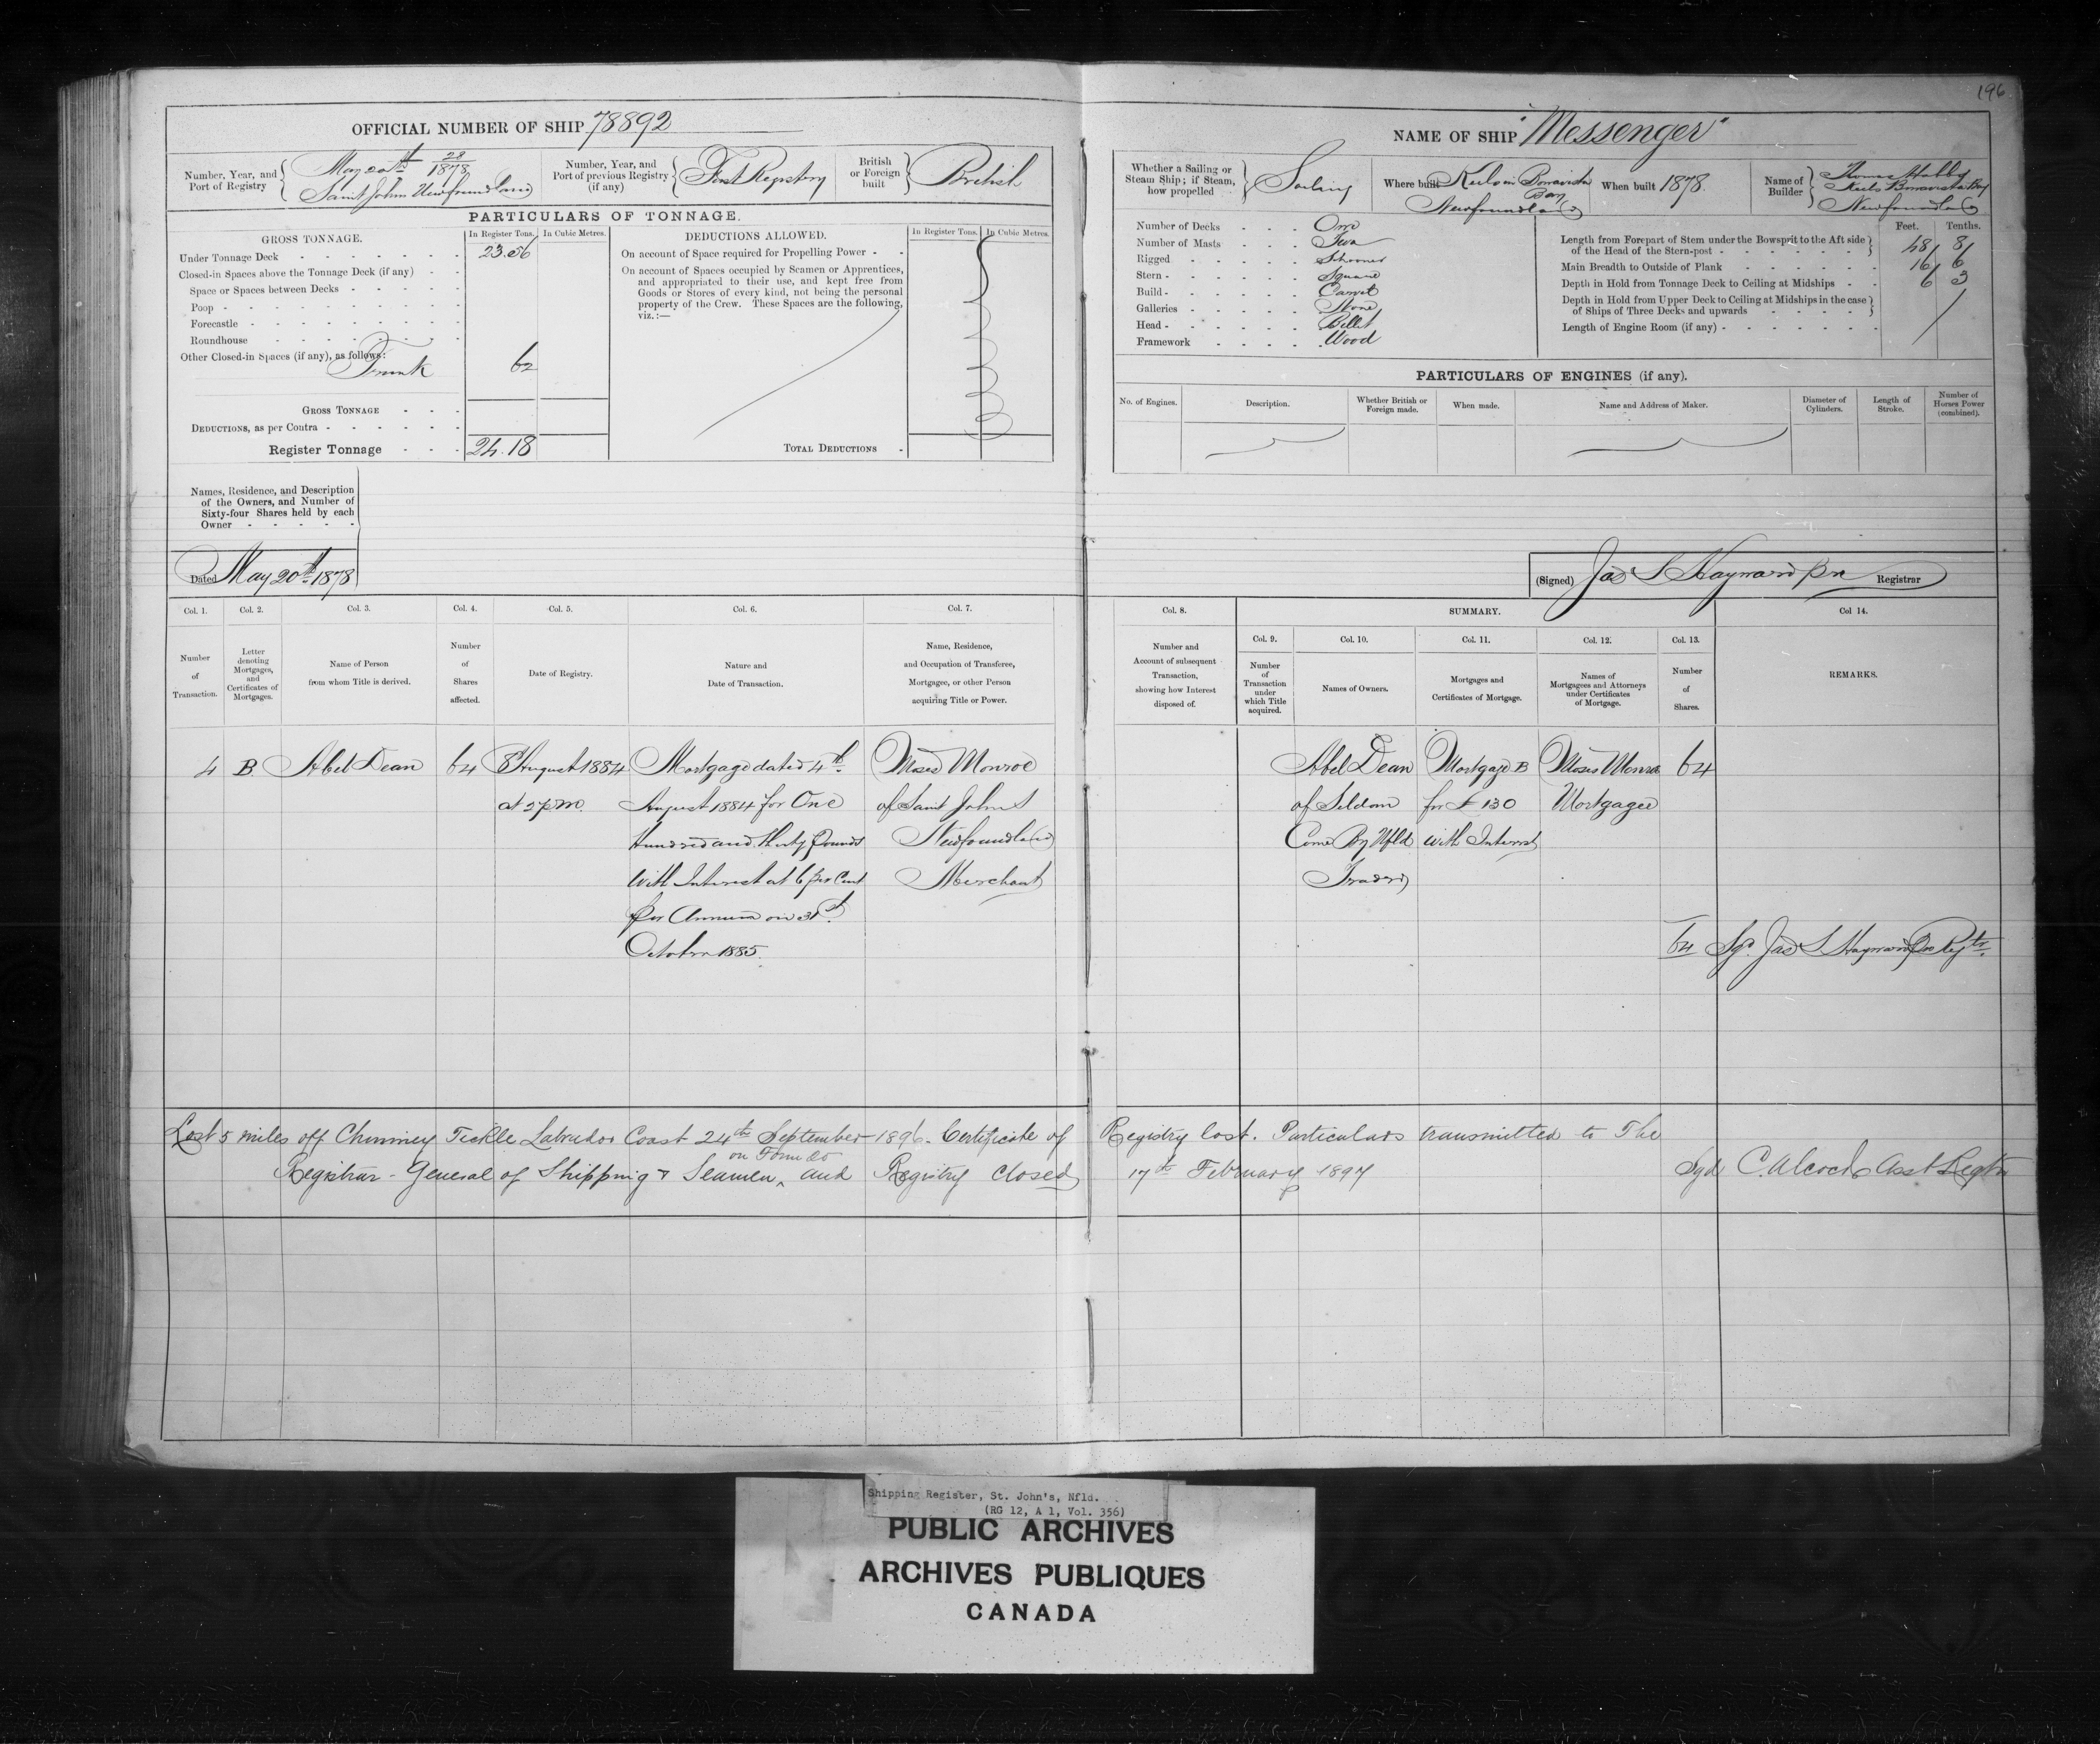 196
OFFICIAL NUMBER OF SHIP 78892
NAME OF SHIP "Messenger"
Number, Year, and Port of Registry
May 20th 28/1878
Saint Johns Newfoundland
Number, Year, and Port of previous Registry (if any)
First Registry
British or Foreign built
British
Whether a Sailing or Steam Ship; if Steam, how propelled
Sailing
Where built Keels in Bonavista Bay Newfoundland
When built 1878.
Name of Builder
Thomas
Keels Bonavista Bay
Newfoundland
PARTICULARS OF TONNAGE.
GROSS TONNAGE.
In Register Tons.
In Cubic Metres.
Under Tonnage Deck 23.56
Closed-in Spaces above the Tonnage Deck (if any)
Space or Spaces between Decks
Poop
Forecastle
Roundhouse
Other Closed-in Spaces (if any), as follows:
Trunk 62
GROSS TONNAGE
DEDUCTIONS, as per Contra
Register Tonnage 24.18
DEDUCTIONS ALLOWED.
In Register Tons.
In Cubic Metres.
On account of Space required for Propelling Power
On account of Spaces occupied by Seamen or Apprentices,
and appropriated to their use, and kept free from
Goods or Stores of every kind, not being the personal
property of the Crew. These Spaces are the following,
viz.:—
TOTAL DEDUCTIONS
Number of Decks One
Number of Masts Two
Rigged Schooner
Stern Square
Build Carvel
Galleries None
Head Billet
Framework Wood
Feet. Tenths.
Length from Forepart of Stem under the Bowsprit to the Aft side
of the Head of the Stern-post 48 8
Main Breadth to Outside of Plank 16 6
Depth in Hold from Tonnage Deck to Ceiling at Midships 6 3
Depth in Hold from Upper Deck to Ceiling at Midships in the case
of Ships of Three Decks and upwards
Length of Engine Room (if any)
PARTICULARS OF ENGINES (if any).
No. of Engines.
Description.
Whether British or Foreign made.
When made.
Name and Address of Maker.
Diameter of Cylinders.
Length of Stroke.
Number of Horses Power (combined).
Names, Residence, and Description
of the Owners, and Number of
Sixty-four Shares held by each
Owner
Dated May 20th 1878
(Signed) Jas L Hayward pn Registrar
Col. 1. Col. 2. Col. 3. Col. 4. Col. 5. Col. 6. Col. 7.
Col. 8. SUMMARY. Col 14.
Col. 9. Col. 10. Col. 11. Col. 12. Col. 13.
Number of Transaction.
Letter denoting Mortgages, and Certificates of Mortgages.
Name of Person from whom Title is derived.
Number of Shares affected.
Date of Registry.
Nature and Date of Transaction.
Name, Residence, and Occupation of Transferee, Mortgagee, or other Person acquiring Title or Power.
Number and Account of subsequent Transaction, showing how Interest disposed of.
Number of Transaction under which Title acquired.
Names of Owners.
Mortgages and Certificates of Mortgage.
Names of Mortgagees and Attorneys under Certificates of Mortgage.
Number of Shares.
REMARKS.
4 B Abel Dean 64
8 August 1884
at 2 p.m.
Mortgage dated 4th
August 1884 for One
Hundred and thirty Pounds
with Interest at 6 per Cent
per Annum on 31st
October 1885.
Moses Monroe
of Saint Johns
Newfoundland
Merchant
Abel Dean
of Seldom
Come By Nfld
Trader
Mortgage B
for £130
with Interest
Moses Monroe
Mortgagee
64
64 Sgd. Jas L Hayward Regtr.
Lost 5 miles off Chimney Tickle Labrador Coast 24th September 1896. Certificate of Registry lost. Particulars transmitted to The
on Form
Registrar-General of Shipping & Seamen, and Registry closed 17th February 1897 Sgd C. Alcock Asst Regtr
Shipping Register, St. John's, Nfld.
(RG 12, A 1, Vol. 356)
PUBLIC ARCHIVES
ARCHIVES PUBLIQUES
CANADA